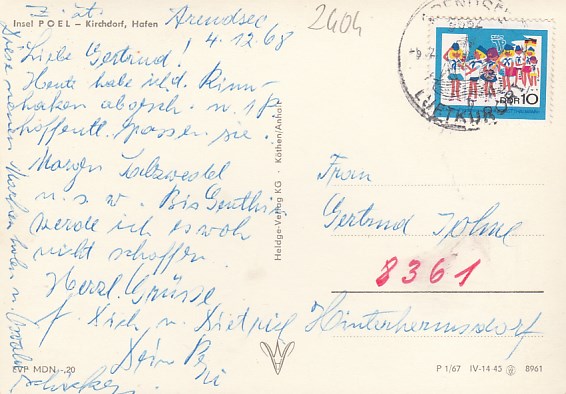 Insel POEL – Kirchdorf, Hafen
Arendsee
4.12.68
2404
Liebe Gertrud!
Heute habe ich d. Rinn-
haken abgesch. u.
hoffentl. passen sie.
Morgen Salzwedel
u.s.w. Bis Genthin
werde ich es woh
nicht schaffen.
Herzl. Grüsse
f. Dich u. Dietrich
Dein
Diese neuen Marken holen u.
schicken
EVP MDN -,20
Heldge-Verlag KG · Köthen/Anhalt
LUFTKURORT
DDR 10
Frau
Gertrud
8361
Hinterhermsdorf
P 1/67 IV-14-45 8961